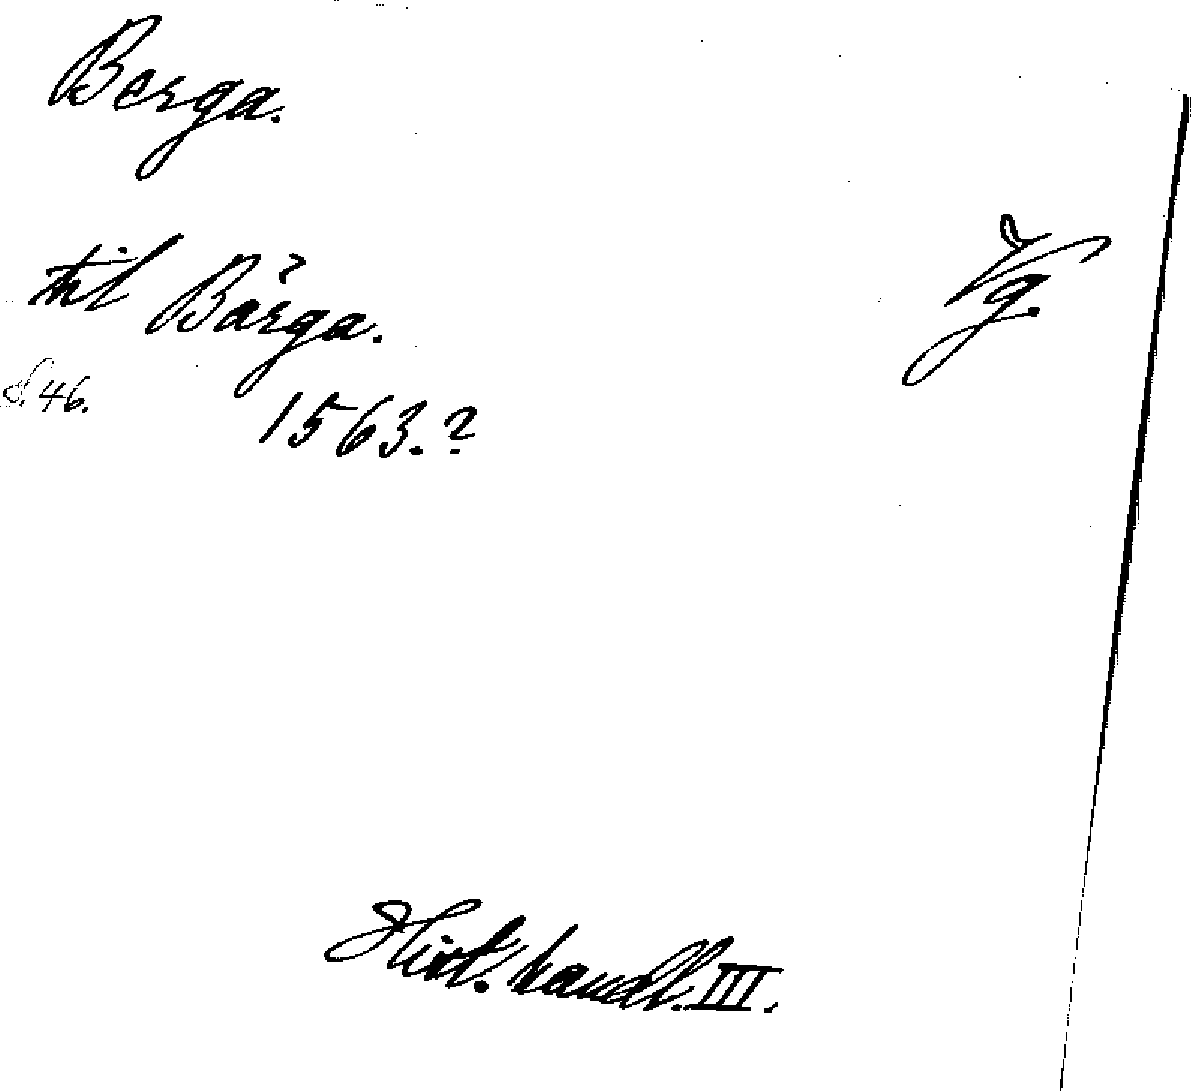 Berga.
Vg.
til Bärga.
S. 46.
1563.?
Hist. handl. III.